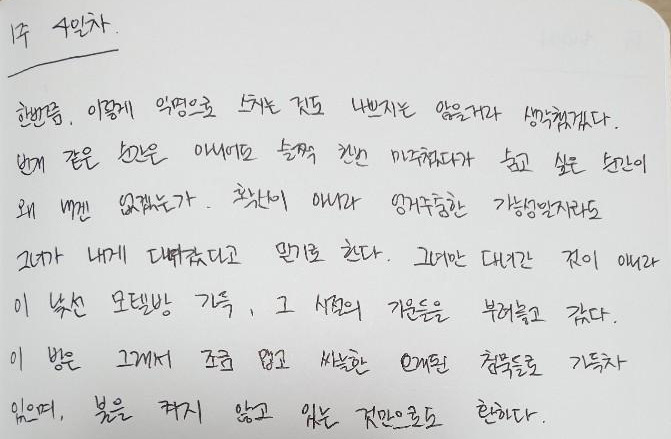 1주 4일차.
한번쯤, 이렇게 익명으로 스치는 것도 나쁘지는 않을거라 생각했겠다.
번개 같은 순간은 아니어도 슬쩍 한번 마주쳤다가 숨고 싶은 순간이
왜 내겐 없겠는가. 확신이 아니라 엉거주춤한 가능성일지라도
그녀가 내게 다녀갔다고 믿기로 한다. 그녀만 다녀간 것이 아니라
이 낯선 모텔방 가득, 그 시절의 기운들을 부려놓고 갔다.
이 방은 그래서 조금 맵고 싸늘한 오래된 침묵들로 가득차
있으며, 불을 켜지 않고 있는 것만으로도 환하다.